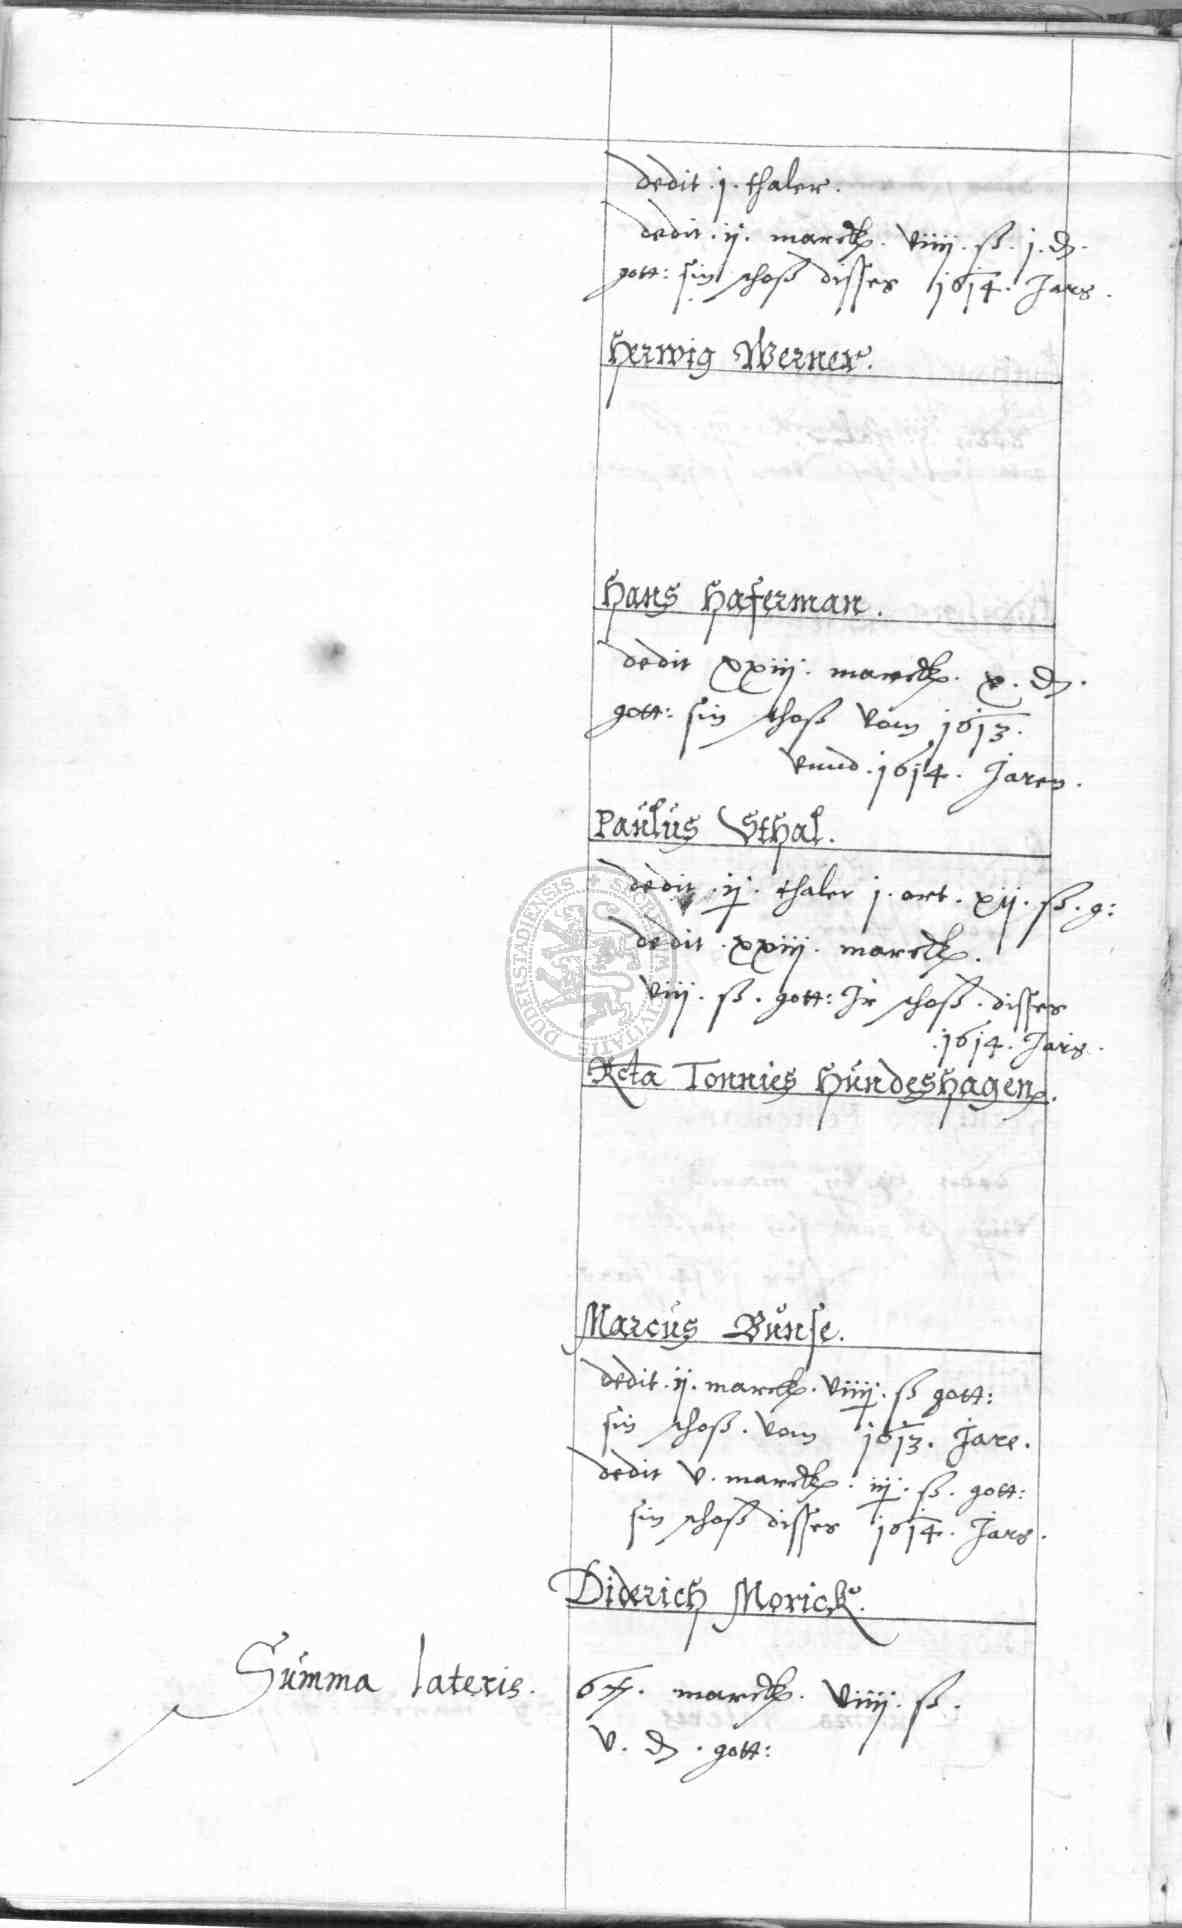 dedit . j . thaler .
dedit . ij . marck . viiij . ß . j . d .
gott: sin schoß disses 1614 . Jars .
Herwig Werner .
Hans Haferman .
dedit xxiij . marck . x . d .
gott: sin schoß vom 1613 .
vnnd . 1614 . Jaren .
Paulus Sthal .
dedit . ij . thaler j . ort . xij . ß . g:
dedit . xxiij . marck .
viij . ß . gott: Jr schoß . disses
. 1614 . Jars .
Rcta Tonnies Hundeshagen .
Marcus Bunse .
dedit . ij . marck . viiij . ß gott:
sin schoß . vom 1613 . Jare .
dedit v . marck . iij . ß . gott:
sin schoß disses 1614 . Jars .
Diderich Morick .
Summa lateris .
marck . viiij . ß .
v . d . gott:
SECRETUM CIVITATIS DUDERSTADIENSIS